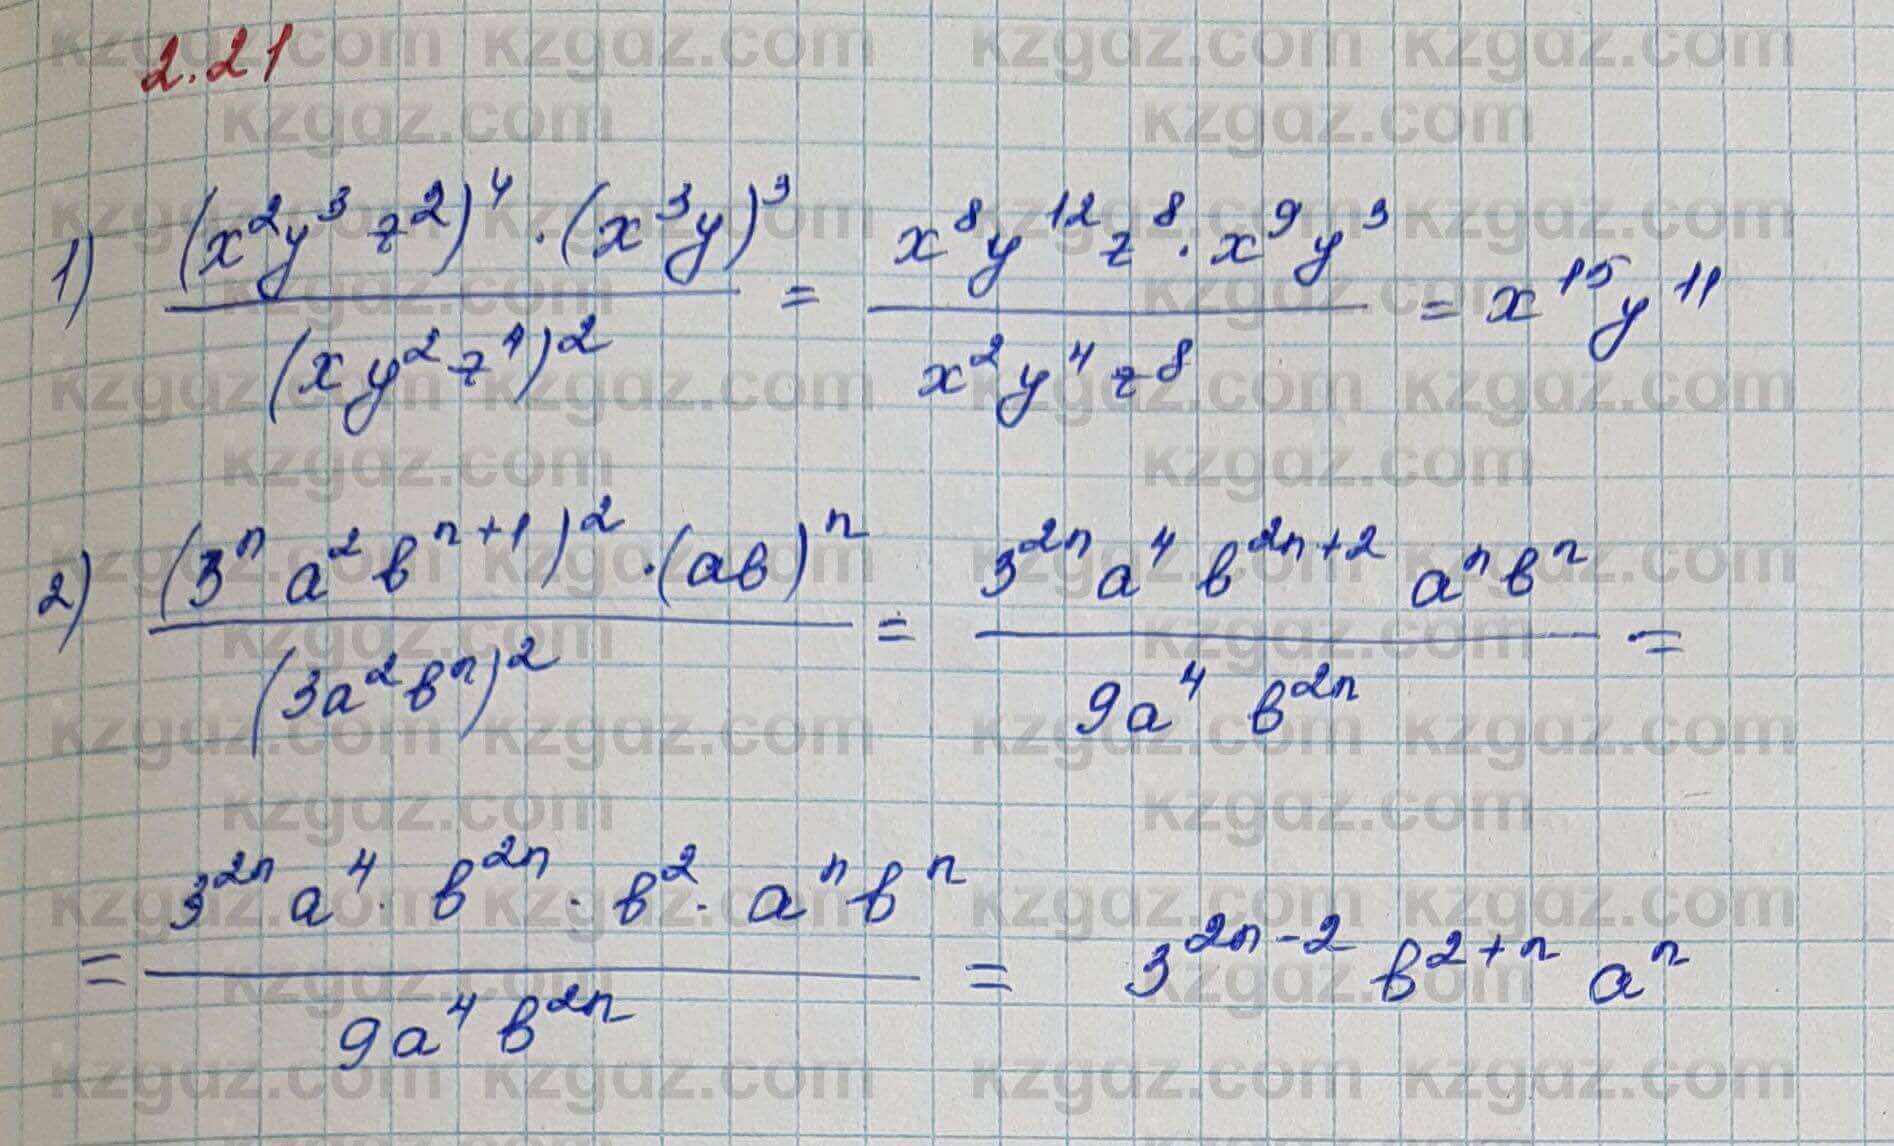 2.21
1) (x²y³z²)⁴·(x³y)³ / (xy²z⁴)² = x⁸y¹²z⁸·x⁹y³ / x²y⁴z⁸ = x¹⁵y¹¹
2) (3ⁿa²bⁿ⁺¹)²·(ab)ⁿ / (3a²bⁿ)² = 3²ⁿa⁴b²ⁿ⁺²aⁿbⁿ / 9a⁴b²ⁿ =
= 3²ⁿa⁴·b²ⁿ·b²·aⁿbⁿ / 9a⁴b²ⁿ = 3²ⁿ⁻²b²⁺ⁿaⁿ
kzgdz.com